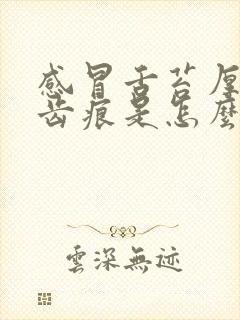 感冒舌苔厚
齿痕是怎麼
雲深無迹